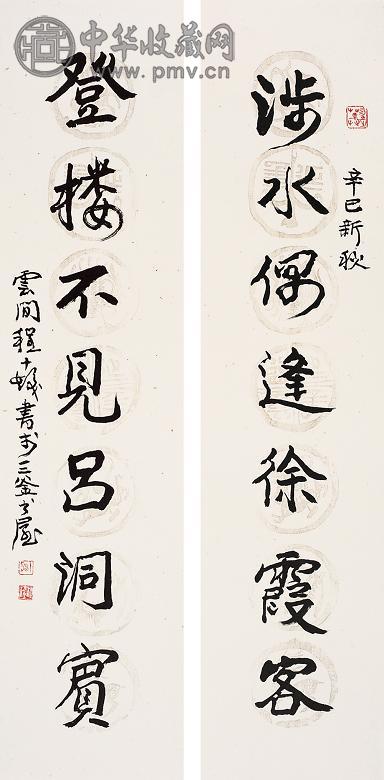 中华收藏网
www.pmv.cn
辛巳新秋
涉水偶逢徐霞客
登楼不见吕洞賓
雲間程十髮書於三釜書屋